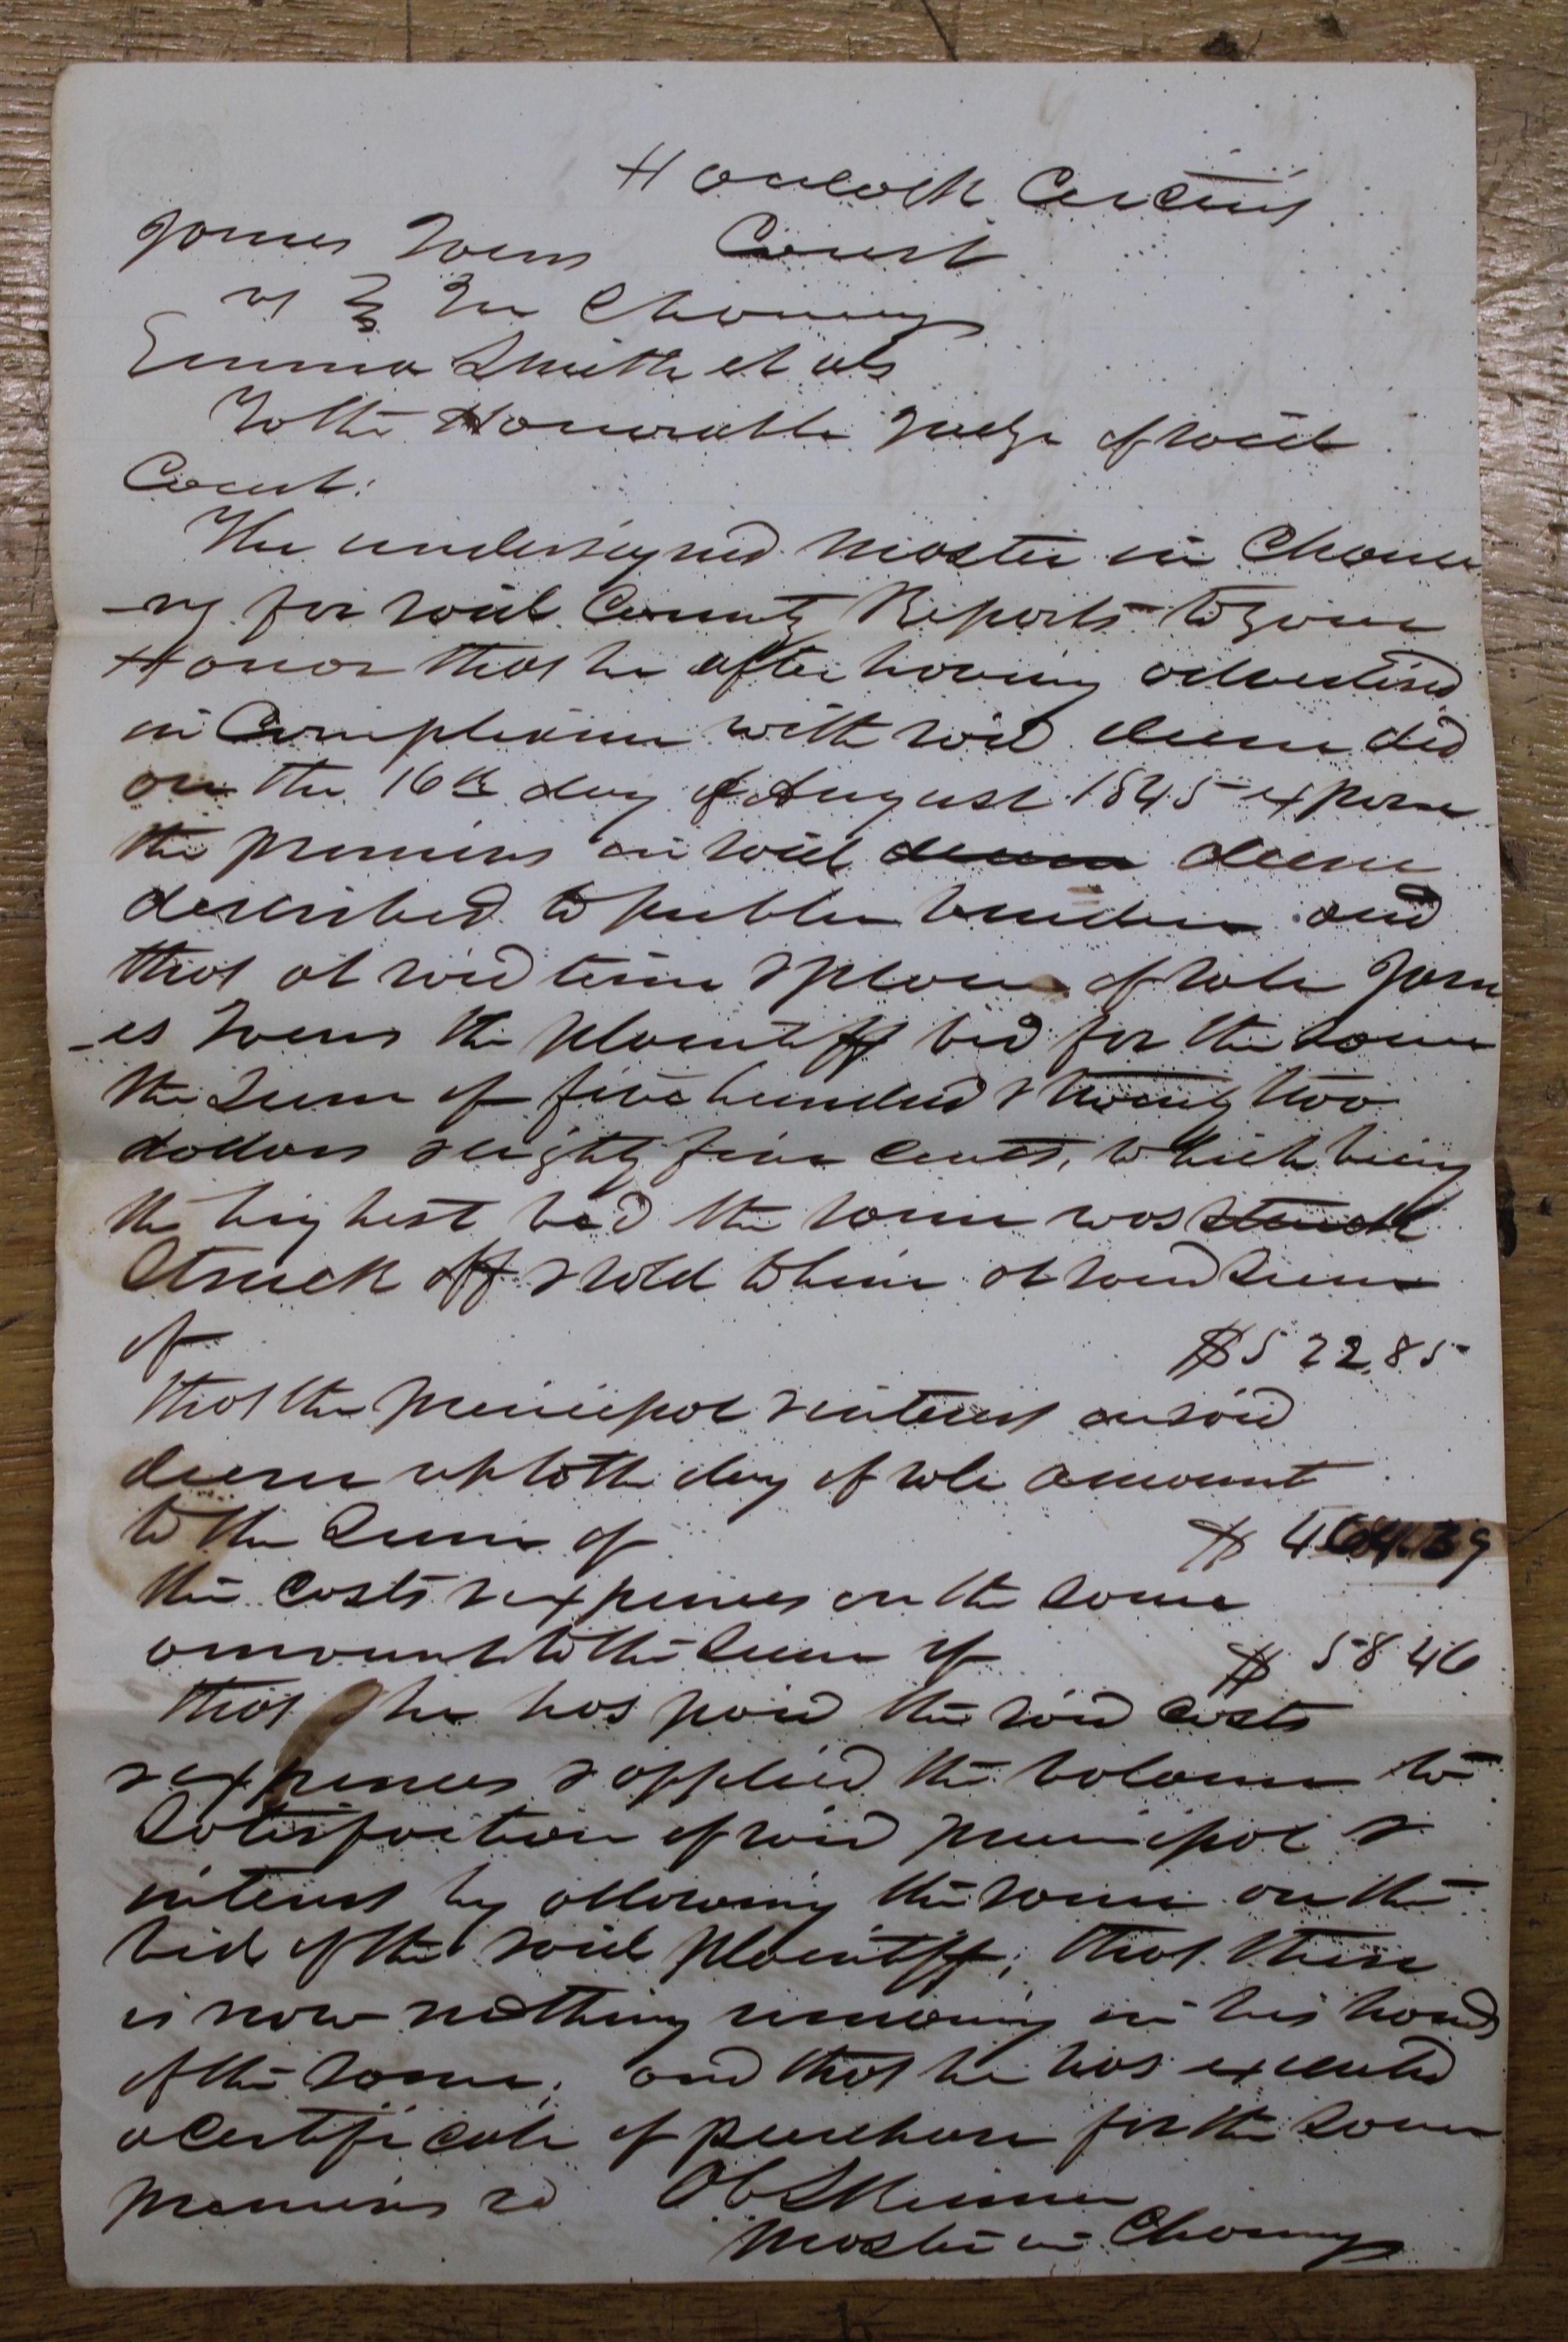 Hancock Circuit
James Ivens Court
vs } In Chancery
Emma Smith et als
To the Honorable Judge of said
Court:
The undersigned master in Chance
-ry for said County Reports to your
Honor that he after having advertised
in Compliance with said decree did
on the 16th day of August 1845 expose
the premises in said decree decree
described to public vendue and
that at said time & place of sale Jam
-es Ivens the plaintiff bid for the same
the Sum of five hundred & twenty two
dollars & eighty five cents, which being
the highest bid the same was struck
Struck off & sold to him at said Sum
of $522.85
that the principal & interest on said
decree up to the day of sale amount
to the Sum of $ 464.39
the costs & expenses on the same
amount to the Sum of $ 58 46
that he has paid the said costs
& expenses & applied the balance to
Satisfaction of said principal &
interest by allowing the same on the
bid of the said plaintiff; that there
is now nothing remaing in his hands
of the same; and that he has executed
a certificate of purchase for the same
premises &c O C Skinner
Master in Chancery